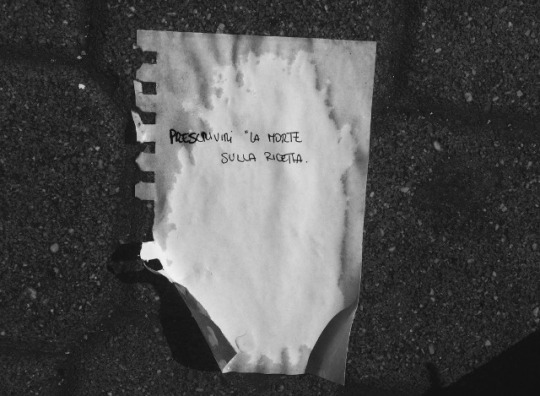 PRESCRIVIMI "LA MORTE
SULLA RICETTA.